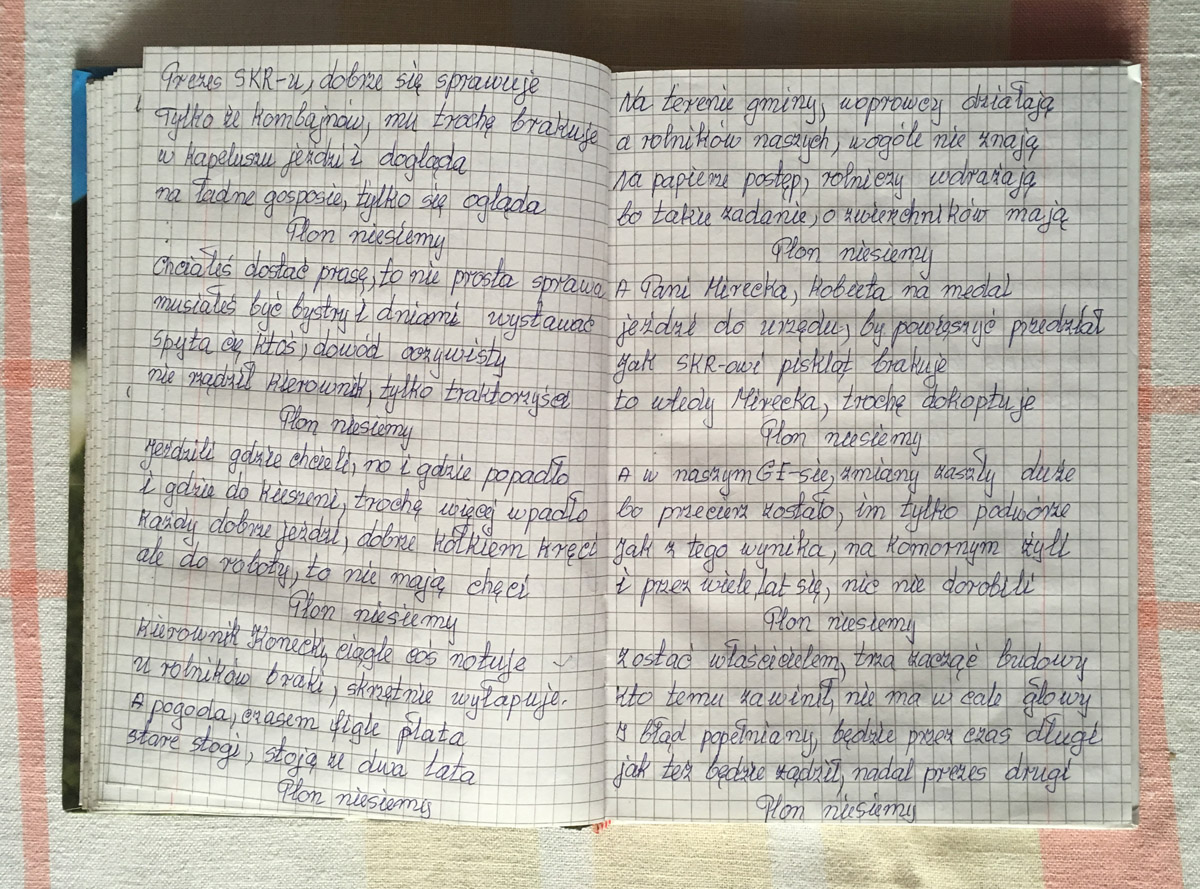 Prezes SKR-u, dobrze się sprawuje
Tylko że kombajnów, mu trochę brakuje
w kapeluszu jeździ i dogląda
na ładne gosposie, tylko się ogląda
Plon niesiemy
Chciałeś dostać prasę, to nie prosta sprawa
musiałeś być bystry i dniami wystawać
Spyta cię ktoś, dowód oczywisty
nie rządził kierownik, tylko traktorzyści
Plon niesiemy
Jeździli gdzie chcieli, no i gdzie popadło
i gdzie do kieszeni, trochę więcej wpadło
Każdy dobrze jeździ, dobrze kółkiem kręci
ale do roboty, to nie mają chęci
Plon niesiemy
Kierownik Konecki, ciągle coś notuje
u rolników braki, skrzętnie wyłapuje.
A pogoda, czasem figle płata
stare stogi, stoją ze dwa lata
Plon niesiemy
Na terenie gminy, woprowcy działają
a rolników naszych, wogóle nie znają
Na papierze postęp, rolniczy wdrażają
bo takie zadanie, o zwierzchników mają
Plon niesiemy
A Pani Mirecka, kobieta na medal
jeździ do urzędu, by powiąszyć przedział
Jak SKR-owi piskląt brakuje
to wtedy Mirecka, trochę dokoptuje
Plon niesiemy
A w naszym GE-sie, zmiany zaszły duże
bo przecierz zostało, im tylko podwórze
Jak z tego wynika, na komornym żyli
i przez wiele lat się, nic nie dorobili
Plon niesiemy
Zostać właścicielem, trza zacząć budowy
Kto temu zawinił, nie ma w cale głowy
Z błąd popełniany, będzie przez czas długi
jak też będzie rządził, nadal prezes drugi
Plon niesiemy